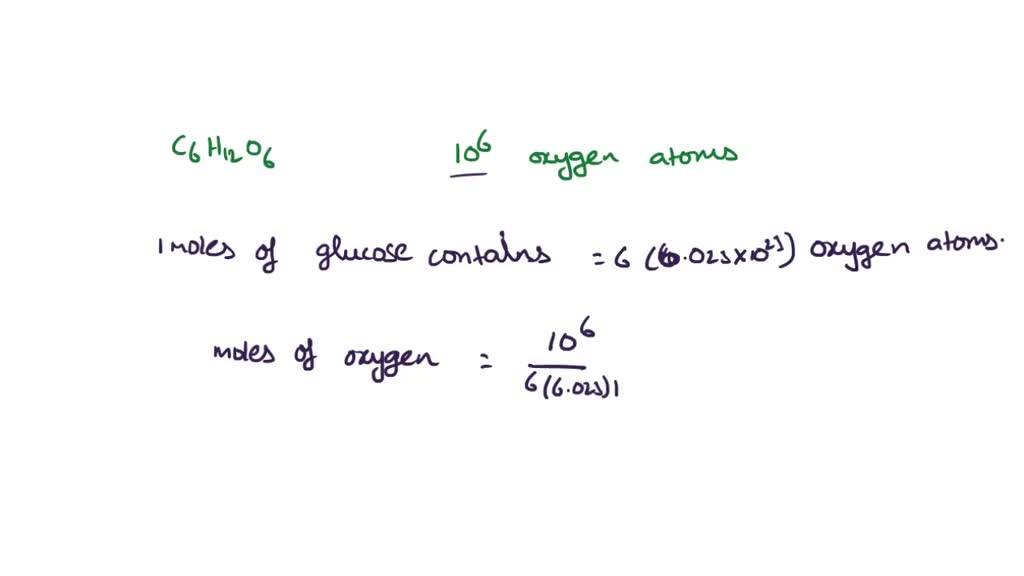 C₆H₁₂O₆ 10⁶ oxygen atoms
1 moles of glucose contains = 6 (6.023×10²³) oxygen atoms.
moles of oxygen = 10⁶ / 6(6.023)1